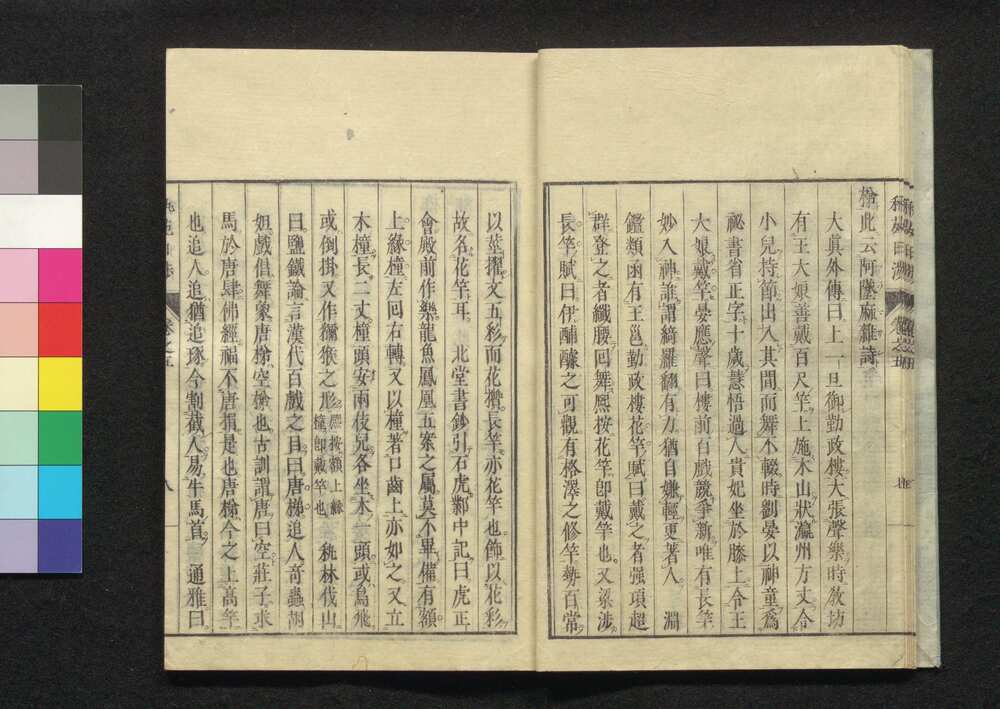 橦此云阿墜麻離詩
大眞外傳曰上一旦御勤政樓大張聲樂時教坊
有王大娘善戴百尺竿上施木山狀瀛州方丈令
小兒持節出入其間而舞不輟時劉晏以神童爲
祕書省正字十歲慧悟過人貴妃坐於膝上令王
大娘戴竿晏應聲曰樓前百戲競爭新唯有長竿
妙入神誰謂綺羅翻有力猶自嫌輕更著人　淵
鑑類函有王邕勤政樓花竿賦曰戴之者强項超
群登之者纖腰回舞熙按花竿卽戴竿也又梁涉
長竿賦曰伊酺醵之可觀有格澤之修竿勢百常
以蕋擢文五彩而花攢長竿亦花竿也飾以花彩
故名花竿耳　北堂書鈔引石虎鄴中記曰虎正
會殿前作樂龍魚鳳凰五案之屬莫不畢備有額
上緣橦左回右轉又以橦著口齒上亦如之又立
木橦長二丈橦頭安兩伎兒各坐木一頭或鳥飛
或倒掛又作獼猴之形熙按額上緣橦卽戴竿也　秇林伐山
曰鹽鐵論言漢代百戲之目曰唐梯追人奇蟲胡
妲戲倡舞象唐橦空橦也古訓謂唐曰空莊子求
馬於唐肆佛經福不唐捐是也唐橦今之上高竿
也追人追猶追琢今割截人易牛馬首　通雅曰
卷之五
八